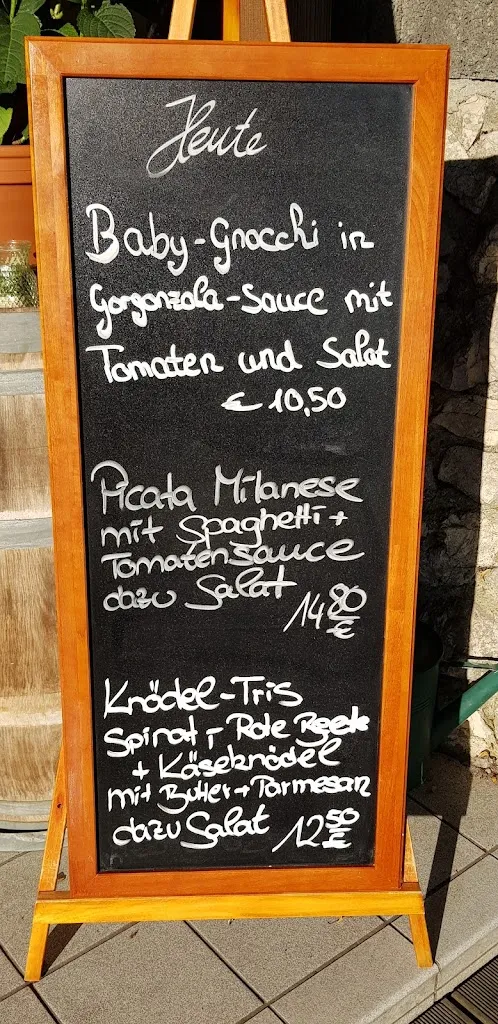 Heute
Baby-Gnocchi in
Gorgonzola-Sauce mit
Tomaten und Salat
€ 10,50
Picata Milanese
mit Spaghetti +
Tomatensauce
dazu Salat
14 80 €
Knödel-Tris
Spinat-, Rote Beete
+ Käseknödel
mit Butter + Parmesan
dazu Salat 12 50 €